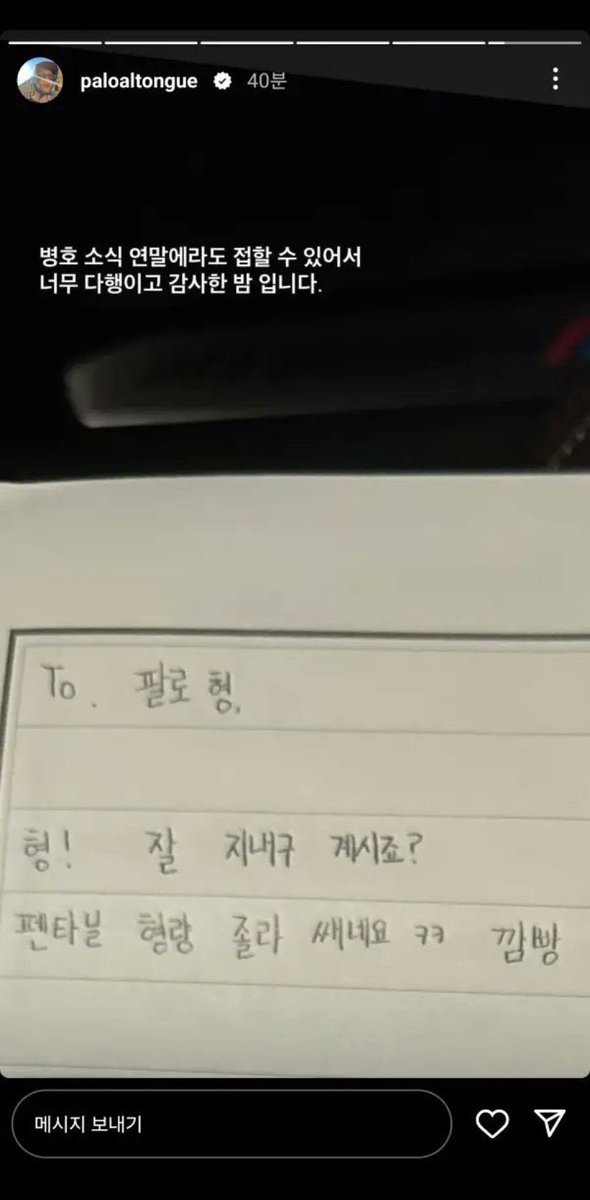 paloaltongue 40분
병호 소식 연말에라도 접할 수 있어서
너무 다행이고 감사한 밤 입니다.
To. 팔로 형.
형! 잘 지내구 계시죠?
펜타닐 형랑 졸라 쌔네요 ㅋㅋ 깜빵
메시지 보내기